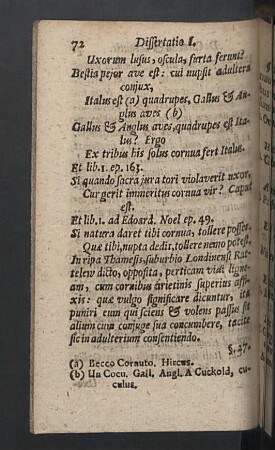 72 Dissertatio I.
Uxorum lusus, oscula, furta ferunt?
Bestia pejor ave est: cui nupsit adultera
conjux,
Italus est (a) quadrupes, Gallus & An-
glus aves (b)
Gallus & Anglus aves, quadrupes est Ita-
lus? Ergo
Ex tribus his solus cornua fert Italus.
Et lib. 1. ep. 163.
Si quando sacra jura tori violaverit uxor,
Cur gerit immeritus cornua vir? Caput
est.
Et lib. 1. ad Edoard. Noel ep. 49.
Si natura daret tibi cornua, tollere posses.
Quæ tibi, nupta dedit, tollere nemo potest.
In ripa Thamesis, suburbio Londinensi Rat-
telew dicto, opposita, perticam vidiligne-
am, cum cornibus arietinis superius affi-
xis: quæ vulgo significare dicuntur, ita
puniri eum qui sciens & volens passus sit
alium cum conjuge sua concumbere, tacite
sic in adulterium consentiendo.
§. 37.
(a) Becco Cornuto. Hircus.
(b) Un Cocu. Gall. Angl. A Cuckold, cu-
culus.